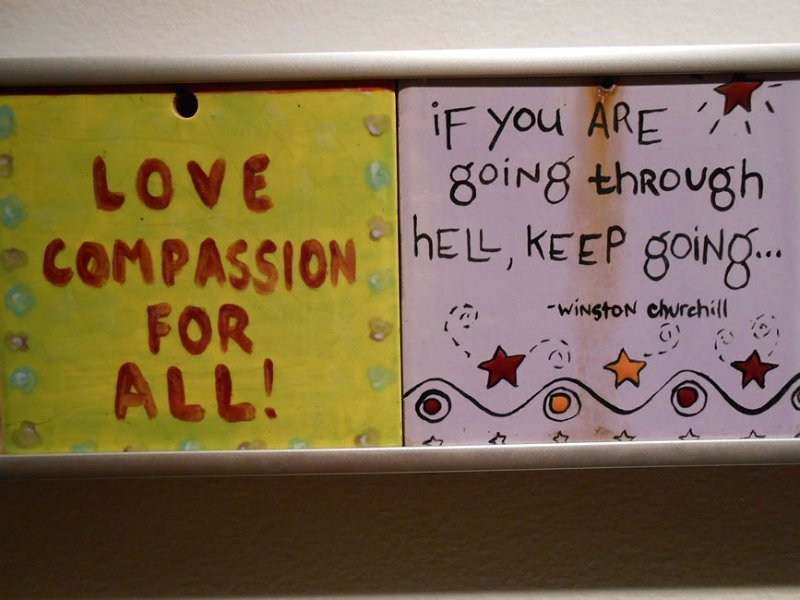 LOVE
COMPASSION
FOR
ALL!
iF you ARE
going through
hELL, KEEP going...
-WINSTON churchill